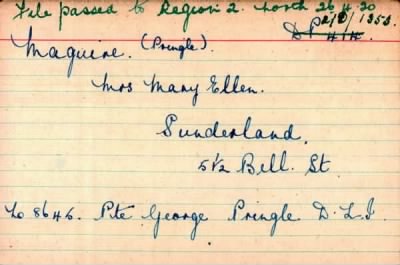 File passed to Region 2. North 26.4.20
D.P. 2/D/1353.
Maguire. (Pringle).
Mrs Mary Ellen.
Sunderland,
51/2 Bell. St.
No 8646. Pte George Pringle D.L.I.